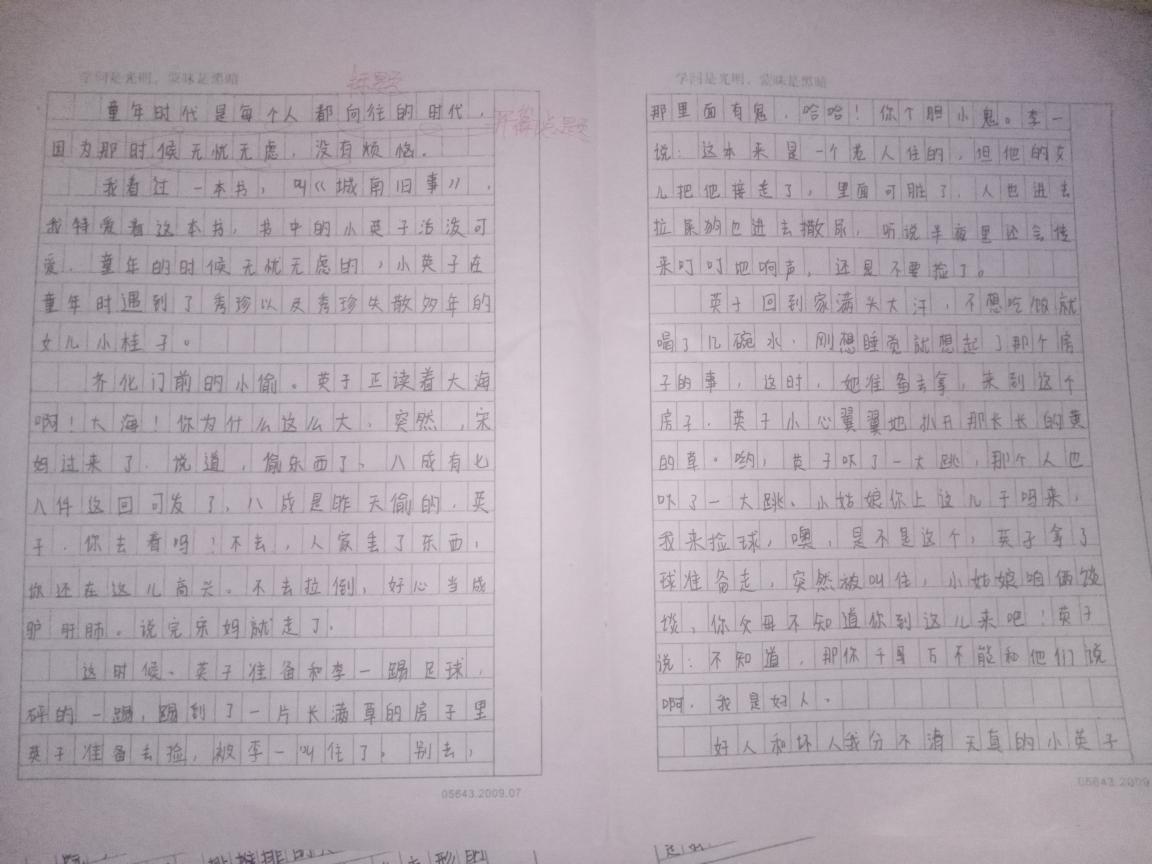 学问是光明，蒙昧是黑暗
标题
童年时代是每个人都向往的时代，
开篇点题
因为那时候无忧无虑，没有烦恼。
我看过一本书，叫《城南旧事》，
我特爱看这本书，书中的小英子活泼可
爱，童年的时候无忧无虑的，小英子在
童年时遇到了秀珍以及秀珍失散多年的
女儿小桂子。
齐化门前的小偷。英子正读着大海
啊！大海！你为什么这么大，突然，宋
妈过来了，说道，偷东西了，八成有七
八件这回可发了，八成是昨天偷的，英
子，你去看吗！不去，人家丢了东西，
你还在这儿高兴。不去拉倒，好心当成
驴肝肺。说完宋妈就走了。
这时候，英子准备和李一踢足球，
砰的一踢，踢到了一片长满草的房子里
英子准备去捡，被李一叫住了，别去，
05643.2009.07
学问是光明，蒙昧是黑暗
那里面有鬼，哈哈！你个胆小鬼。李一
说：这本来是一个老人住的，但他的女
儿把他接走了，里面可脏了，人也进去
拉屎狗也进去撒尿，听说半夜里还会传
来叮叮地响声，还是不要捡了。
英子回到家满头大汗，不想吃饭就
喝了几碗水，刚想睡觉就想起了那个房
子的事，这时，她准备去拿，来到这个
房子，英子小心翼翼地扒开那长长的黄
的草。哟，英子吓了一大跳，那个人也
吓了一大跳、小姑娘你上这儿干吗来，
我来捡球，噢，是不是这个，英子拿了
球准备走，突然被叫住，小姑娘咱俩谈
谈，你父母不知道你到这儿来吧！英子
说：不知道，那你千万不能和他们说
啊，我是好人。
好人和坏人我分不清天真的小英子
05643.2009